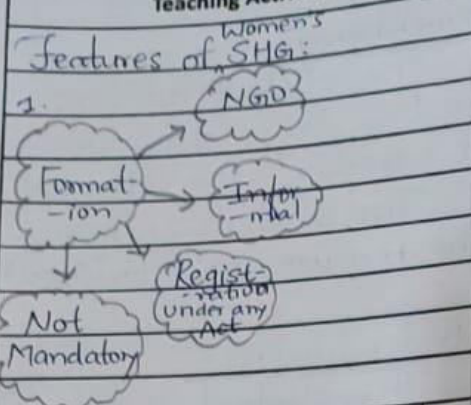 Teaching
Women's
features of SHG:
1.
NGO
Format-
-ion
Infor
-mal
Regist-
-ration
under any
Act
Not
Mandatory